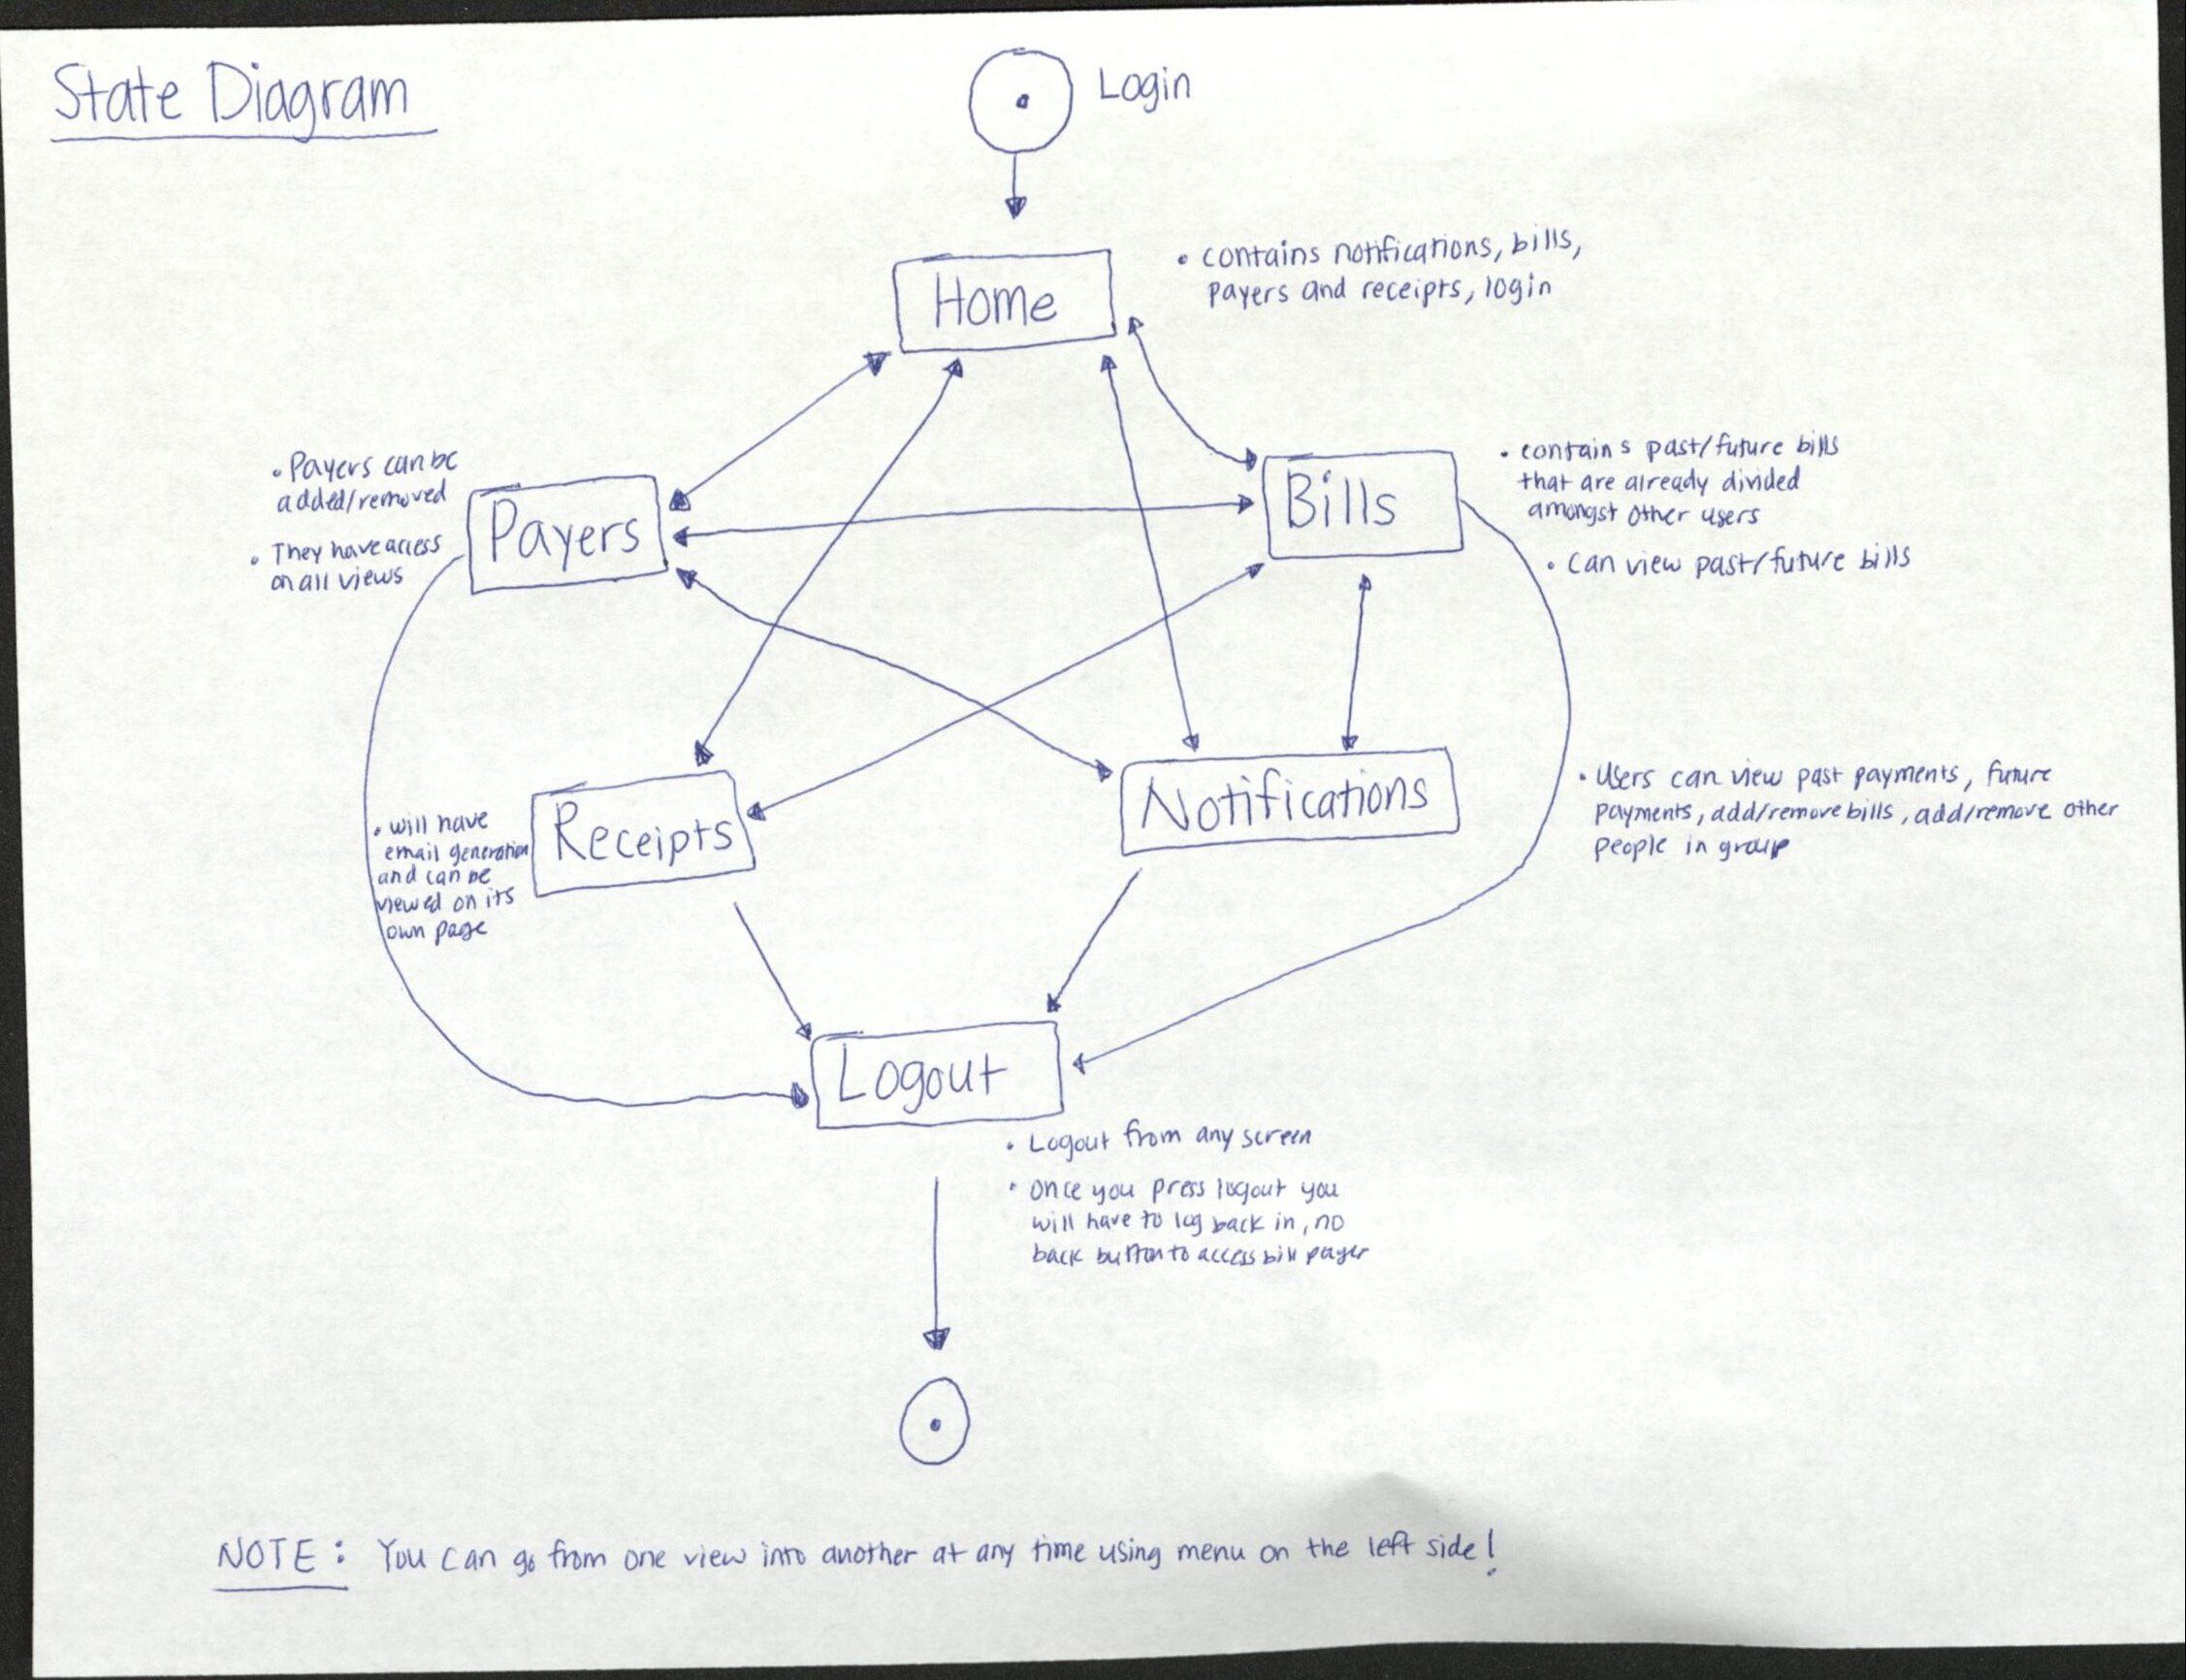 State Diagram
Login
Home
• contains notifications, bills,
payers and receipts, login
• Payers can be
added/removed
• They have access
on all views
Payers
Bills
• contains past/future bills
that are already divided
amongst other users
• Can view past/future bills
• will have
email generation
and can be
viewed on its
own page
Receipts
Notifications
• Users can view past payments, future
payments, add/remove bills, add/remove other
people in group
Logout
• Logout from any screen
• once you press logout you
will have to log back in, no
back button to access bill payer
NOTE: You can go from one view into another at any time using menu on the left side!